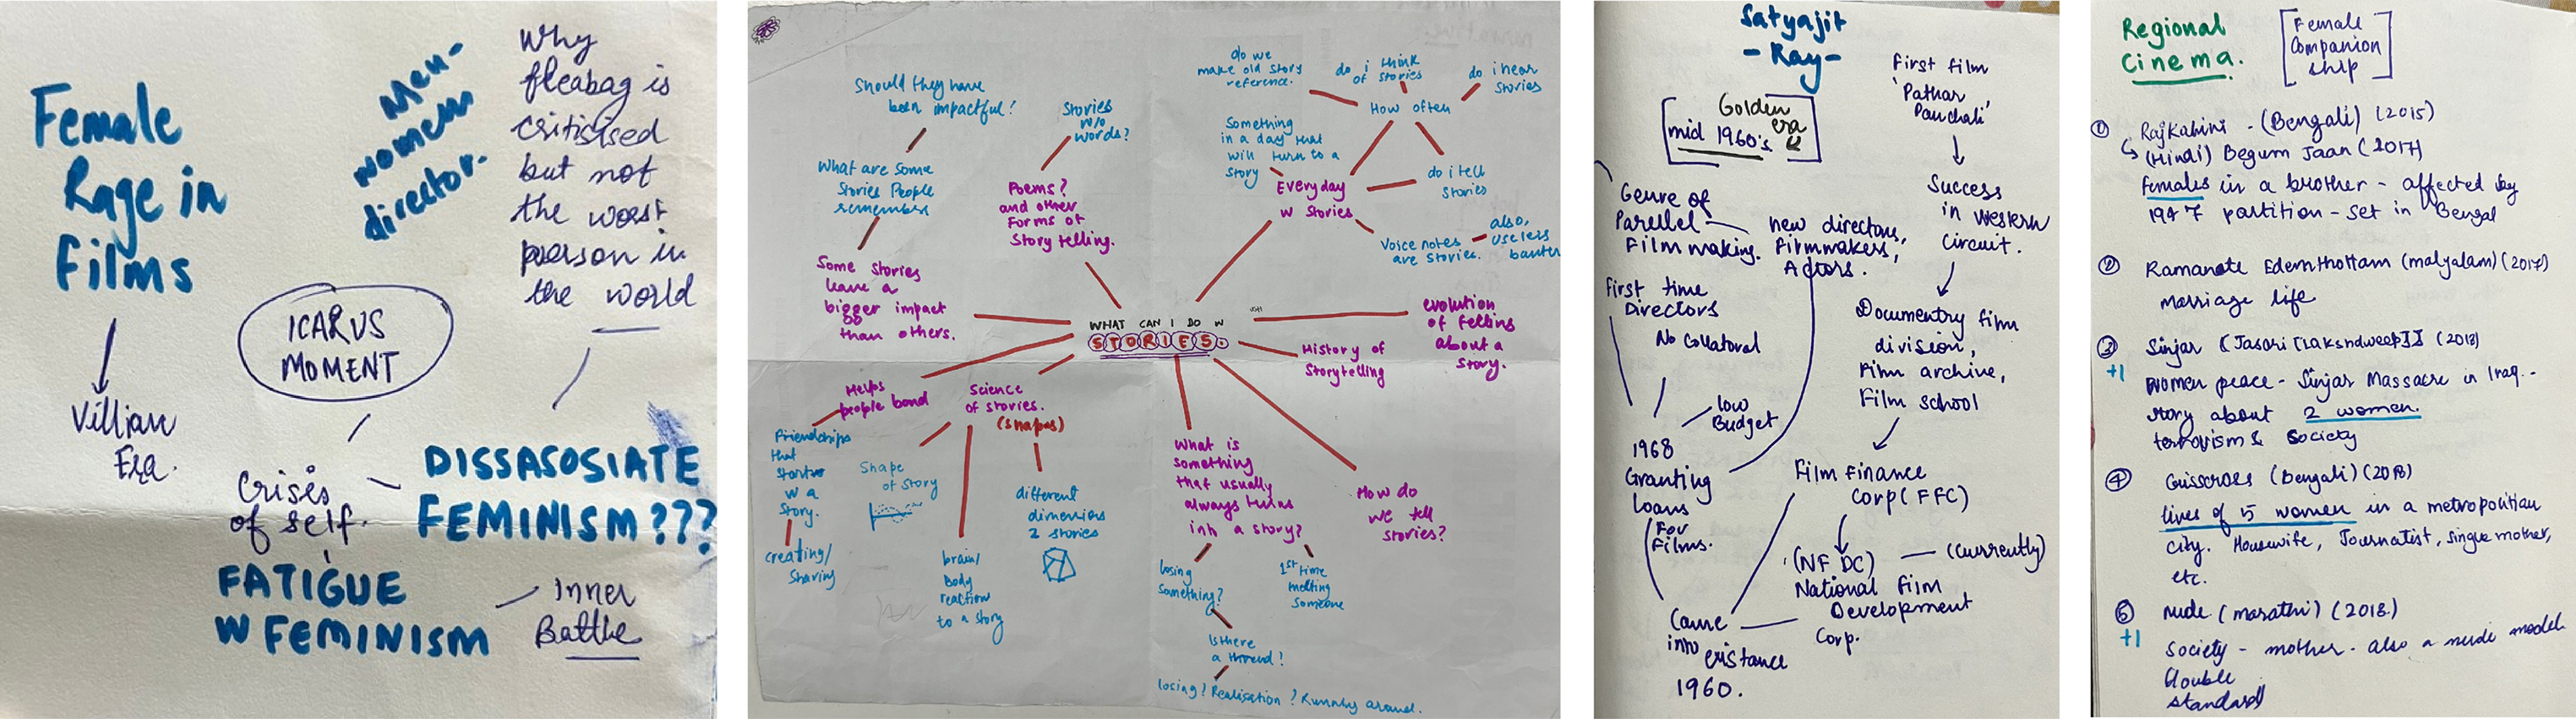 Female
Rage in
Films
Villian
Era.
Men-
women
director.
Why
fleabag is
criticised
but not
the worst
person in
the world
ICARUS
MOMENT
Crises
of self.
DISSASOSIATE
FEMINISM???
FATIGUE
W FEMINISM
Inner
Battle
WHAT CAN I DO W
STORIES.
Should they have
been impactful?
What are some
Stories People
remembers
Some stories
leave a
bigger impact
than others.
Stories
w/o
words?
Poems?
and other
Forms of
Story telling.
do we
make old story
reference.
do i think
of stories
do i hear
stories
How often
do i tell
stories
Something
in a day that
will turn to a
story
Everyday
w Stories
Voice notes
are stories.
also,
useless
banter
evolution
of fellins
about a
story.
History of
Storytelling
Helps
people bond
Friendships
that
starts
w a
story.
creating/
sharing
Science
of stories.
(shapes)
Shape
of story
brain/
body
reaction
to a story
different
dimensions
2 stories
What is
something
that usually
always turns
into a story?
losing
something?
1st time
meeting
someone
Is there
a thread?
losing? Realisation? Running around.
How do
we tell
stories?
Satyajit
-Ray-
Golden
era
mid 1960's
First film
'Pathar
Panchali'
Success
in western
circuit.
Documentry film
division,
Film archive,
Film school
Film Finance
Corp (FFC)
(NFDC) — (currently)
National Film
Development
Corp.
Genre of
Parellel
Film making.
new directors,
filmmakers,
Actors.
First time
Directors
No Collatoral
low
Budget
1968
Granting
loans
For
Films.
Came
into existance
1960.
Regional
Cinema.
[Female
Companion
ship]
① Rajkahini - (Bengali) (2015)
(Hindi) Begum Jaan (2017)
females in a brother - affected by
1947 partition - set in Bengal
② Ramante Edenthottam (malyalam) (2017)
marriage life
③ Sinjar [Jasari [Lakshdweep]] (2018)
+1 women peace - Sinjar Massacre in Iraq.-
story about 2 women.
terrorism & Society
④ Crisscross (Bengali) (2018)
lives of 5 women in a metropolitian
city. Housewife, Journalist, single mother,
etc.
⑤ Nude (marathi) (2018)
+1 Society - mother - also a nude model
double
standard